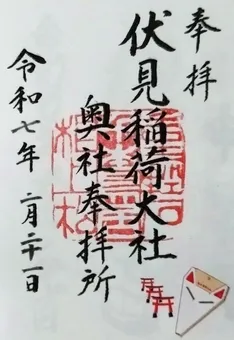 奉拝
伏見稲荷大社
奥社奉拝所
令和七年 二月二十一日